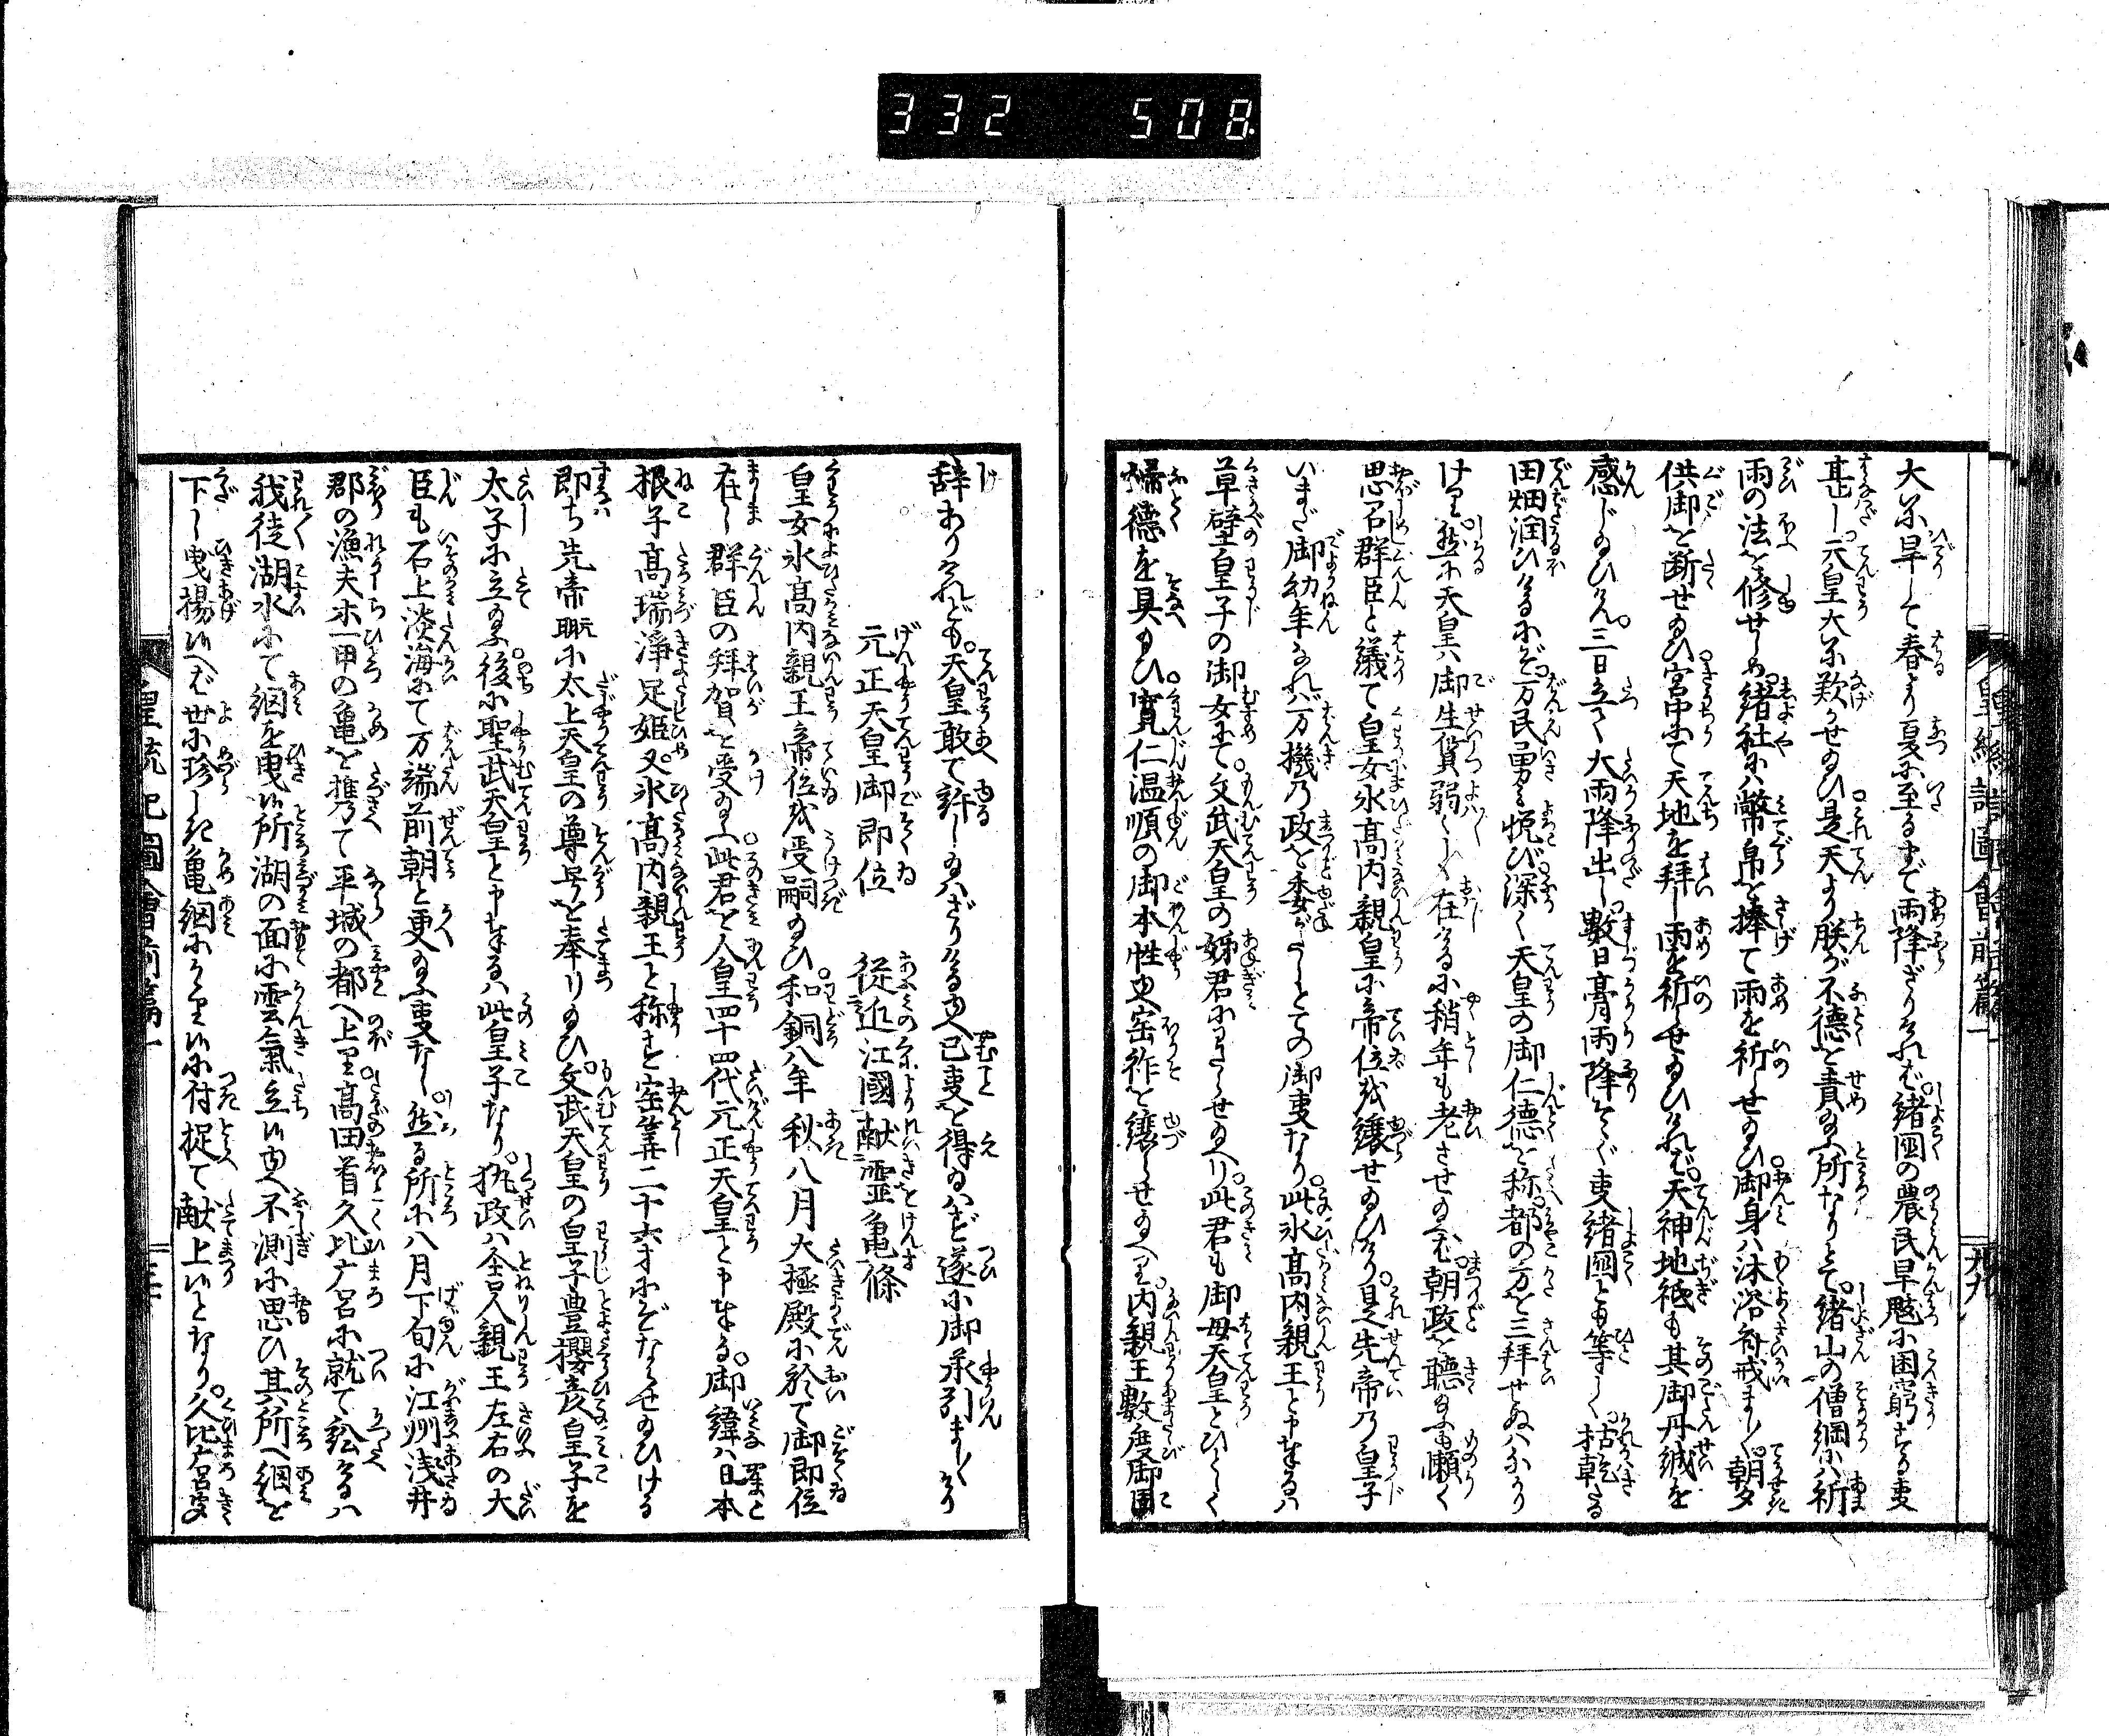 332 508
大に旱して春より夏に至るまで雨降ざりければ諸国の農民旱魃に困窮する事
甚し元皇大に歎かせ給ひ是天より朕が不徳を責め給ふ所なりとて諸山の僧綱に祈
雨の法を修せしめ諸社に幣帛を捧て雨を祈らせ給ひ御身は沐浴斎戒まし〳〵朝夕
供御を断せ給ひ宮中にて天地を拝し雨を祈らせ給ひければ天神地祇も其御丹誠を
感じ給ひけん三日立て大雨降出し数日膏雨降そゝぐ事諸国とも等しく枯乾たる
田畑潤ひけるにぞ万民勇み悦び深く天皇の御仁徳を称へ都の方を三拝せぬはなかり
けり然に天皇は御生質弱々しく在しけるに稍年も老させ給へば朝政を聴給ふも懶く
思召群臣と議て皇女氷高内親皇に帝位を譲せ給ひけり是先帝の皇子
いまだ御幼年なれば万機の政を委がたしとての御事なり此氷高内親王と申奉るは
草壁皇子の御女にて文武天皇の姉君にわたらせ給へり此君も御母天皇とひとしく
婦徳を具給ひ寛仁温順の御本性ゆへ宝祚を譲らせ給へり内親王数度御固
辞ありけれども天皇敢て許し給はざりけるゆへ已事を得給はず遂に御承引まし〳〵けり
元正天皇御即位 従近江國献霊亀條
皇女氷高内親王帝位を受嗣給ひ和銅八年秋八月大極殿に於て御即位
在し群臣の拝賀を受給ふ此君を人皇四十四代元正天皇と申奉る御諱は日本
根子高瑞浄足姫又氷高内親王と称す宝算二十六才にぞならせ給ひける
即ち先帝元明に太上天皇の尊号を奉り給ひ文武天皇の皇子豊桜彦皇子を
太子に立給ふ後に聖武天皇と申奉るは此皇子なり執政は舎人親王左右の大
臣も石上淡海にて万端前朝と更給ふ事なし然る所に八月下旬に江州浅井
郡の漁夫ホ一甲の亀を携て平城の都へ上り高田首久比广呂に就て訟るは
我徒湖水にて網を曳候所湖の面に雲氣立候ゆへ不測に思ひ其所へ網を
下し曳揚候へば世に珍しき亀網にかゝり候に付捉て献上候となり久比广呂吏